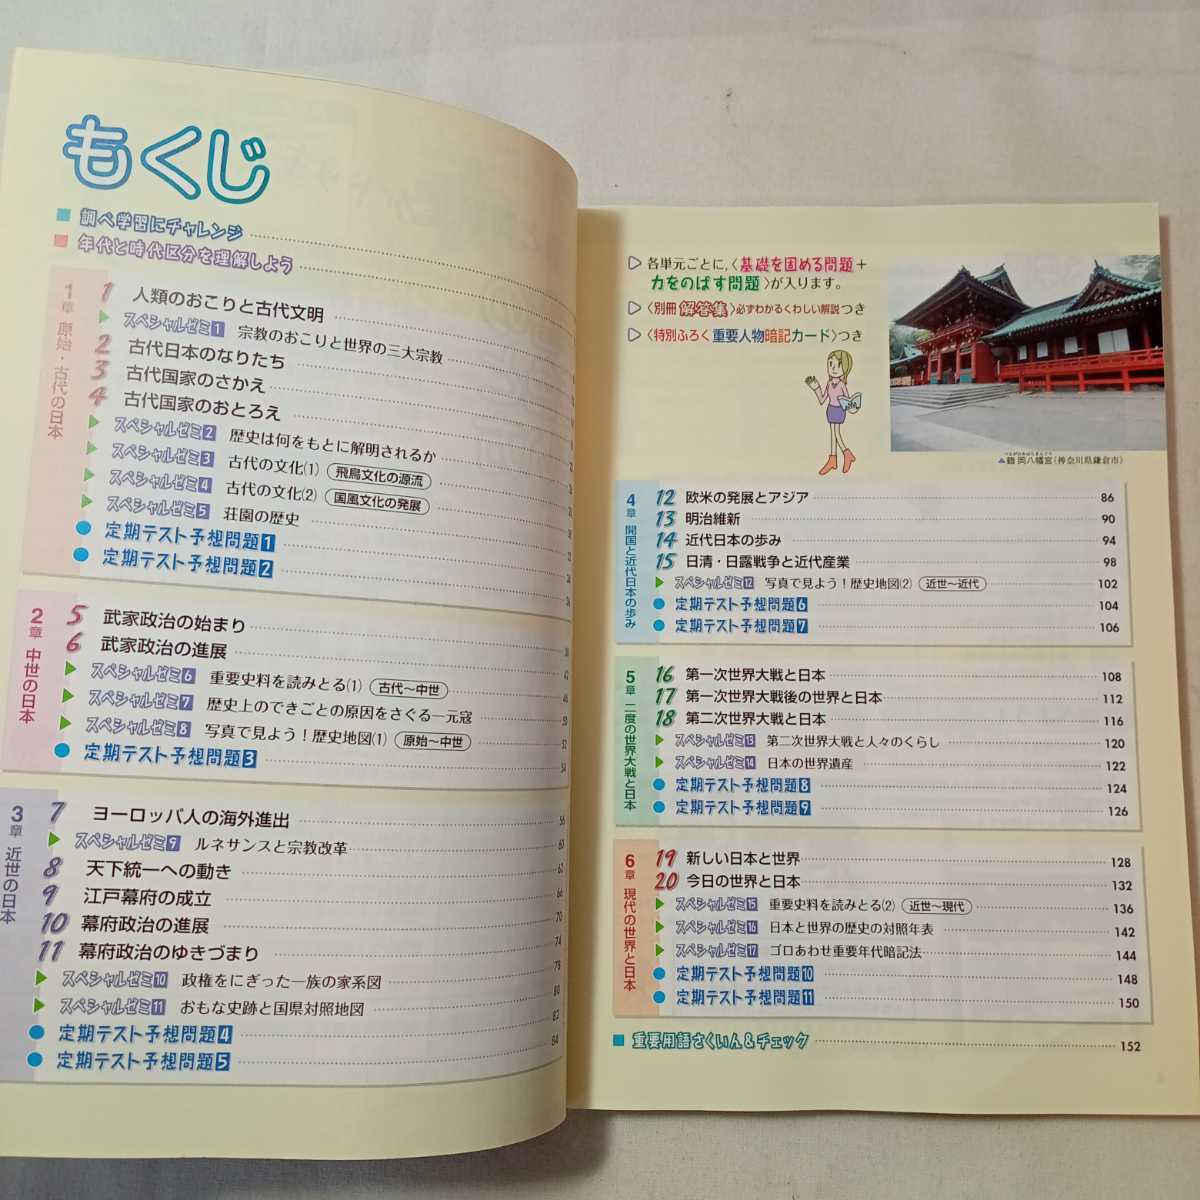 もくじ
調べ学習にチャレンジ
年代と時代区分を理解しよう
1章 原始・古代の日本
1 人類のおこりと古代文明
スペシャルゼミ1 宗教のおこりと世界の三大宗教
2 古代日本のなりたち
3 古代国家のさかえ
4 古代国家のおとろえ
スペシャルゼミ2 歴史は何をもとに解明されるか
スペシャルゼミ3 古代の文化(1) 飛鳥文化の源流
スペシャルゼミ4 古代の文化(2) 国風文化の発展
スペシャルゼミ5 荘園の歴史
定期テスト予想問題1
定期テスト予想問題2
2章 中世の日本
5 武家政治の始まり
6 武家政治の進展
スペシャルゼミ6 重要史料を読みとる(1) 古代〜中世
スペシャルゼミ7 歴史上のできごとの原因をさぐる―元寇 50
スペシャルゼミ8 写真で見よう!歴史地図(1) 原始〜中世 52
定期テスト予想問題3 54
3章 近世の日本
7 ヨーロッパ人の海外進出 56
スペシャルゼミ9 ルネサンスと宗教改革 60
8 天下統一への動き 62
9 江戸幕府の成立 66
10 幕府政治の進展 70
11 幕府政治のゆきづまり 74
スペシャルゼミ10 政権をにぎった一族の家系図 78
スペシャルゼミ11 おもな史跡と国県対照地図 80
定期テスト予想問題4 82
定期テスト予想問題5 84
各単元ごとに,〈基礎を固める問題+
力をのばす問題〉が入ります。
〈別冊解答集〉必ずわかるくわしい解説つき
〈特別ふろく重要人物暗記カード〉つき
▲鶴岡八幡宮(神奈川県鎌倉市)
4章 開国と近代日本の歩み
12 欧米の発展とアジア 86
13 明治維新 90
14 近代日本の歩み 94
15 日清・日露戦争と近代産業 98
スペシャルゼミ12 写真で見よう!歴史地図(2) 近世〜近代 102
定期テスト予想問題6 104
定期テスト予想問題7 106
5章 二度の世界大戦と日本
16 第一次世界大戦と日本 108
17 第一次世界大戦後の世界と日本 112
18 第二次世界大戦と日本 116
スペシャルゼミ13 第二次世界大戦と人々のくらし 120
スペシャルゼミ14 日本の世界遺産 122
定期テスト予想問題8 124
定期テスト予想問題9 126
6章 現代の世界と日本
19 新しい日本と世界 128
20 今日の世界と日本 132
スペシャルゼミ15 重要史料を読みとる(2) 近世〜現代 136
スペシャルゼミ16 日本と世界の歴史の対照年表 142
スペシャルゼミ17 ゴロあわせ重要年代暗記法 144
定期テスト予想問題10 148
定期テスト予想問題11 150
重要用語さくいん&チェック 152